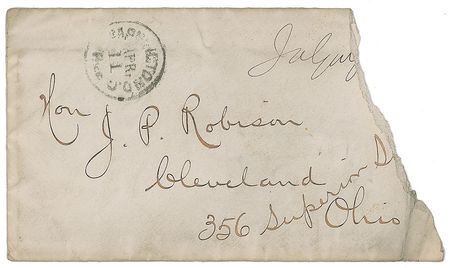 WASHINGTON D.C.
APR
11
J A Gar
Hon J. P. Robison
Cleveland
356 Superior St
Ohio